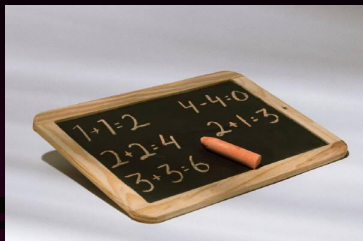 1+1=2
2+2=4
3+3=6
4-4=0
2+1=3